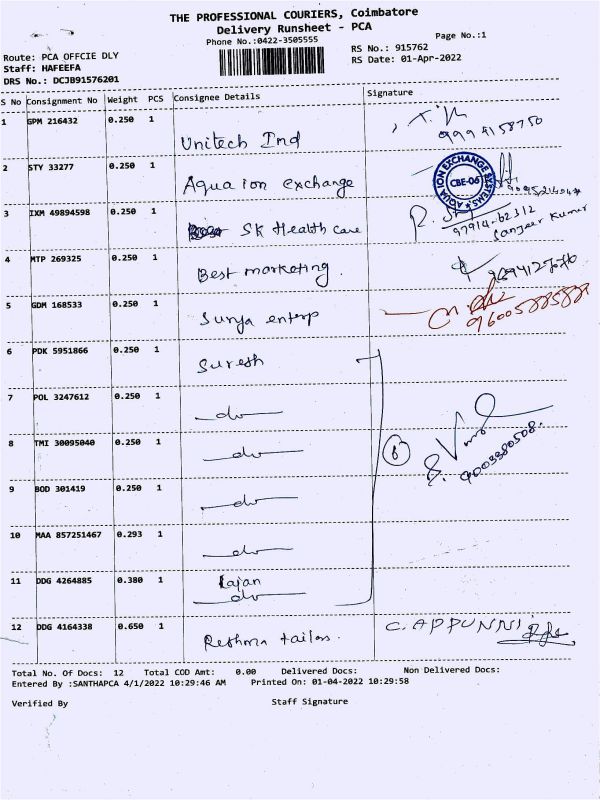 THE PROFESSIONAL COURIERS, Coimbatore
Delivery Runsheet - PCA
Phone No.:0422-3505555
Page No.:1
Route: PCA OFFCIE DLY
RS No.: 915762
Staff: HAFEEFA
RS Date: 01-Apr-2022
DRS No.: DCJB91576201
S No Consignment No Weight PCS Consignee Details Signature
1 GPM 216432 0.250 1 Unitech Ind 9994158750
2 STY 33277 0.250 1 Aqua ion exchange
AQUA ION EXCHANGE SYSTEMS CBE-06
3 IXM 49894598 0.250 1 SK Health care
97914-62312
Sanjeer Kumar
4 MTP 269325 0.250 1 Best marketing.
5 GDM 168533 0.250 1 Surya enterp 9600588588
6 PDK 5951866 0.250 1 Suresh
7 POL 3247612 0.250 1 do
8 TMI 30095040 0.250 1 do 6
9003380508.
9 BOD 301419 0.250 1 do
10 MAA 857251467 0.293 1 do
11 DDG 4264885 0.380 1 Rajan
do
12 DDG 4164338 0.650 1 Reshma tailos. C. APPUNNI
Total No. Of Docs: 12 Total COD Amt: 0.00 Delivered Docs: Non Delivered Docs:
Entered By :SANTHAPCA 4/1/2022 10:29:46 AM Printed On: 01-04-2022 10:29:58
Verified By Staff Signature